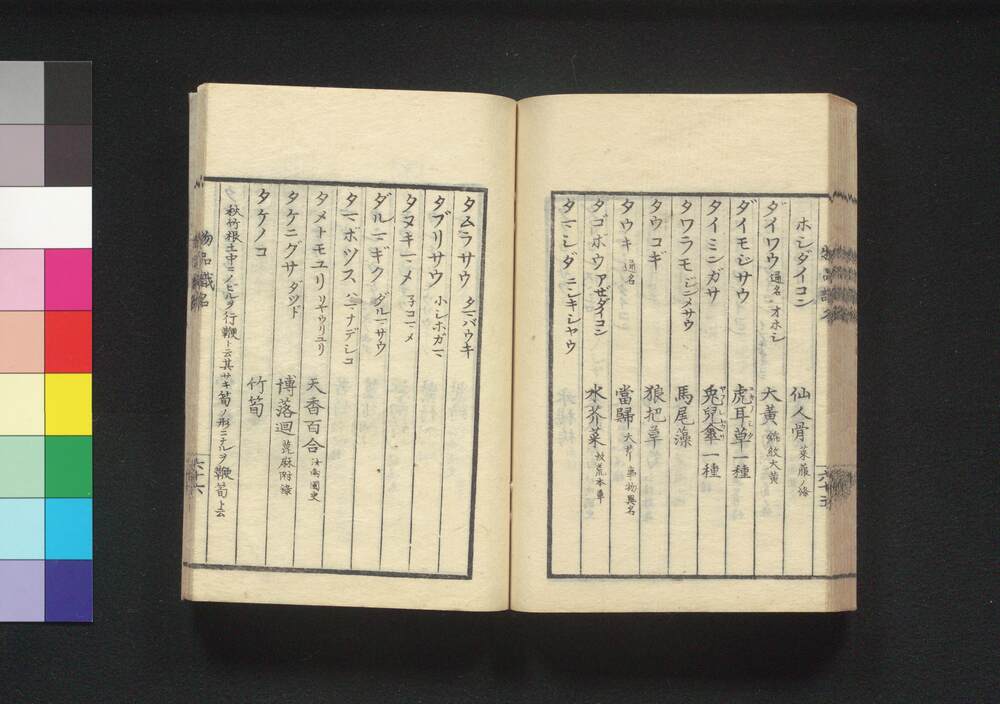 ホシダイコン 仙人骨 菜服ノ條
ダイワウ 通名 オホシ 大黄 錦紋大黄
ダイモンジサウ 虎耳草一種
タイミンガサ 兎兒傘一種
タワラモ ジンメサウ 馬尾藻
タウコギ 狼把草
タウキ 通名 當歸 大芹 事物異名
タゴボウ アゼダイコン 水芥菜 救荒本草
タマシダ ニンキシャウ
タムラサウ タマバウキ
タブリサウ 小シホガマ
タヌキマメ 子コマメ
ダルマギク ダルマサウ
タマボツス ハマナデシコ
タメトモユリ リヤウリユリ 天香百合 汝南圃史
タケニグサ タツド 博落迴 蓖麻附錄
タケノコ 竹筍
秋竹根土中ニノビルヲ行鞭ト云其サキ筍ノ形ニナルヲ鞭筍ト云
物品識名
六十六